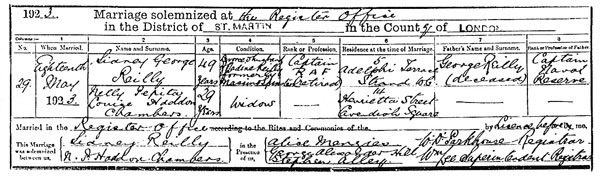 1923. Marriage solemnized at the Register Office
in the District of ST. MARTIN in the County of LONDON
Columns:— 1 2 3 4 5 6 7 8
No. When Married. Name and Surname. Age Condition. Rank or Profession. Residence at the time of Marriage. Father's Name and Surname. Rank or Profession of Father.
29. Eighteenth May 1923. Sidney George Reilly 49 Years Captain RAF (retired) 5 Adelphi Terrace Strand W.C. George Reilly (deceased) Captain Naval Reserve
Nelly Pepita Louise Haddon Chambers. 29 Years Widow Henrietta Street Cavendish Square
Married in the Register Office according to the Rites and Ceremonies of the by Licence before me,
This Marriage was solemnized between us, Sidney Reilly
N. P. Haddon Chambers in the Presence of us, Alice Menzies
George Alexander Hill
Stephen Alley W. Parkhouse Registrar
Superintendent Registrar